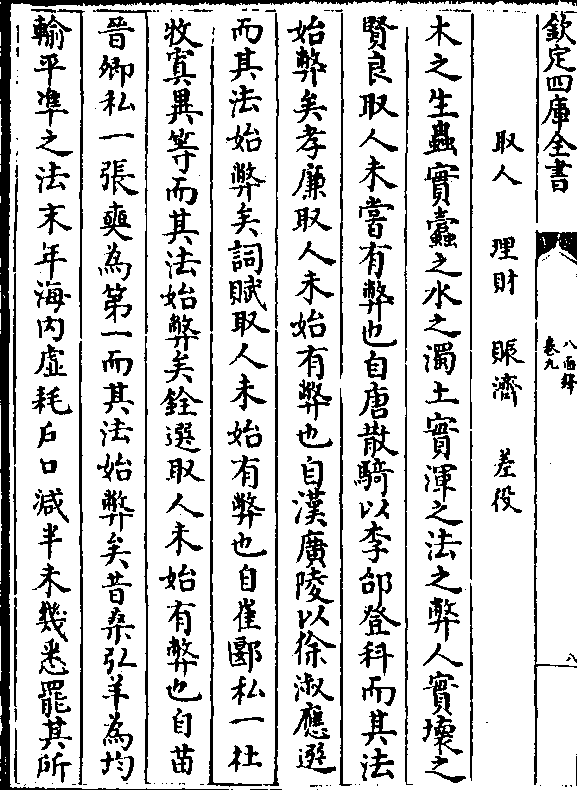 欽定四庫全書
八面鋒
卷九
八
取人　理財　賑濟　差役
木之生蟲實蠹之水之濁土實渾之法之弊人實壞之
賢良取人未嘗有弊也自唐散騎以李郃登科而其法
始弊矣孝廉取人未始有弊也自漢廣陵以徐淑應選
而其法始弊矣詞賦取人未始有弊也自崔郾私一杜
牧寘異等而其法始弊矣銓選取人未始有弊也自苗
晉卿私一張奭為第一而其法始弊矣昔桑弘羊為均
輸平準之法末年海内虛耗户口減半未幾悉罷其所